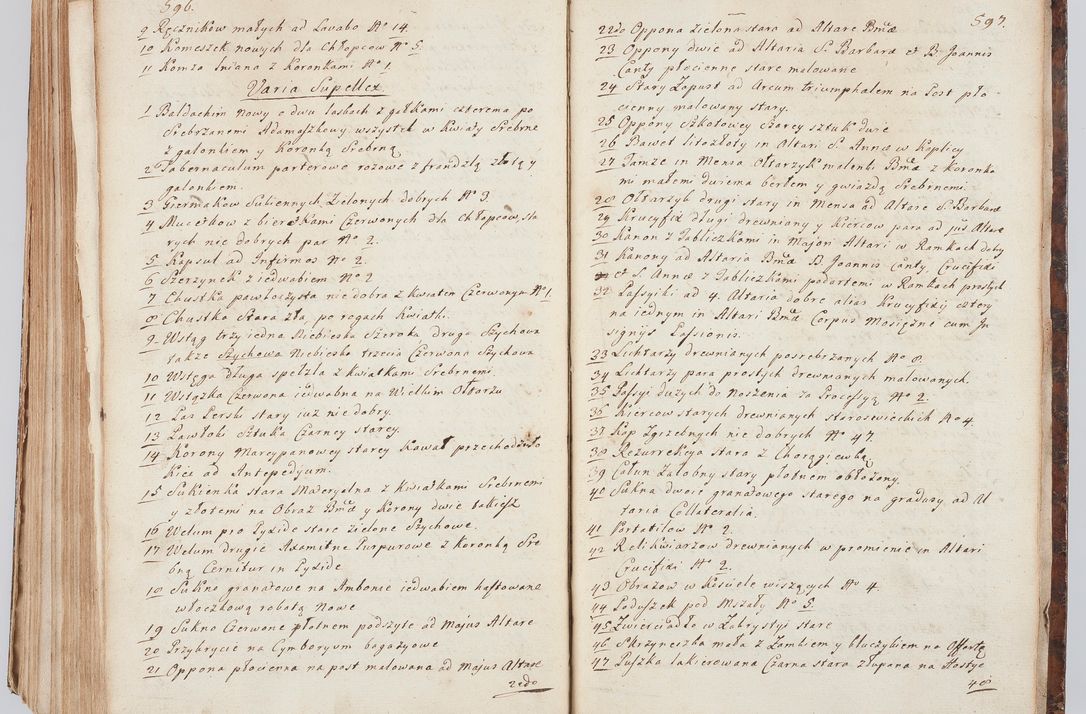 596.
9 Ręczników małych ad Lavabo Nº 14.
10 Komeszek nowych dla Chłopcow Nº 5.
11 Komza lniana z Koronkami Nº 1.
Varia Supellex
1 Baldachim Nowy o dwu laskach z gałkami czterema po
srebrzanemi Adamaszkowy wszystek w Kwiaty Srebrne
z galonkiem y Koronką Srebrną
2 Tabernaculum parterowe rożowe z frandzlą złotą y
galonkiem.
3 Giermakow Sukiennych Zielonych dobrych Nº 3.
4 Mucetkow z bieretkami Czerwonych dla chłopcow sta
rych nie dobrych par Nº 2.
5 Kapsuł ad Infirmos Nº 2.
6 Szerzynek z jedwabiem Nº 2
7 Chustka pawłoczysta nie dobra z kwiatem Czerwonym Nº 1.
8 Chustka stara zła, po rogach Kwiatki.
9 Wstąg trzy jedna Niebieska Szeroka druga Szychowa
także Szychowa Niebieska trzecia Czerwona Szychowa
10 Wstęga długa spełzła z kwiatkami Srebrnemi
11 Wstążka Czerwona jedwabna na Wielkim Ołtarzu
12 Pas Perski stary juz nie dobry.
13 Pawłoki Sztuka Czarney starey.
14 Korony Marcypanowey starey Kawał przechodziło
Kiez ad Antepedyum.
15 Sukienka stara Materyalna z kwiatkami Srebrnemi
y złotemi na Obraz Bmæ y Korony dwie takież
16 Welum pro Pyxide stare zielone Szychowe.
17 Welum drugie Axamitne Purpurowe z koronką Sre
brną Cernitur in Pyxide
18 Sukno granatowe na Ambonie jedwabiem haftowane
włoczkową robotą Nowe
19 Sukno Czerwone płotnem podszyte ad Majus Altare
20 Przykrycie na Cymboryum bagazyowe
21 Oppona płocienna na post malowana ad Majus Altare
22do
597.
22do Oppona zielona stara ad Altare Bmæ
23 Oppony dwie ad Altaria S. Barbaræ et B. Joannis
Canty płocienne stare malowane
24 Stary Zapust ad Arcum triumphalem na Post pło
cienny malowany stary.
25 Oppony Szkotowey Szarey sztuk dwie
26 Bawet litozłoty in Altari S. Annæ w Kaplicy
27 Tamze in Mensa Ołtarzyk malenki Bmæ z korona
mi małemi dwiema berłem y gwiazdą Srebrnemi
28 Ołtarzyk drugi stary in Mensa ad Altare S. Barbaræ
29 Krucyfix długi drewniany y Kiercow para ad jus Altare
30 Kanon z Tabliczkami in Majori Altari w Ramkach doby
31 Kanony ad Altaria Bmæ B. Joannis Canty, Crucifixi
et S. Annæ z Tabliczkami podartemi w Ramkach prostych
32 Passyiki ad 4. Altaria dobre alias Krucyfixy cztery
na jednym in Altari Bmæ Corpus Mosiężne cum In
signijs Passionis.
33 Lichtarzy drewnianych posrebrzanych Nº 8.
34 Lichtarzy para prostych drewnianych malowanych.
35 Passyi dużych do Noszenia za Processyą Nº 2.
36 Kiercow starych drewnianych staroswieckich Nº 4.
37 Kop Zgrzebnych nie dobrych Nº 47.
38 Rezurrekcya stara z Chorągiewką.
39 Całun Załobny stary płotnem obłożony.
40 Sukna dwoie granatowego starego na gradusy ad Al
taria Collateralia.
41 Portatilow Nº 2.
42 Relikwiarzow drewnianych w promienie in Altari
Crucifixi Nº 2.
43 Obrazow w Kosciele wiszących Nº 4.
44 Poduszek pod Mszały Nº 5.
45 Zwierciadło w Zakrystyi stare
46 Skrzyneczka mała z Zamkiem y kluczykiem na Offertę
47 Puszka lakierowana Czarna stara złupana na Hostye
48